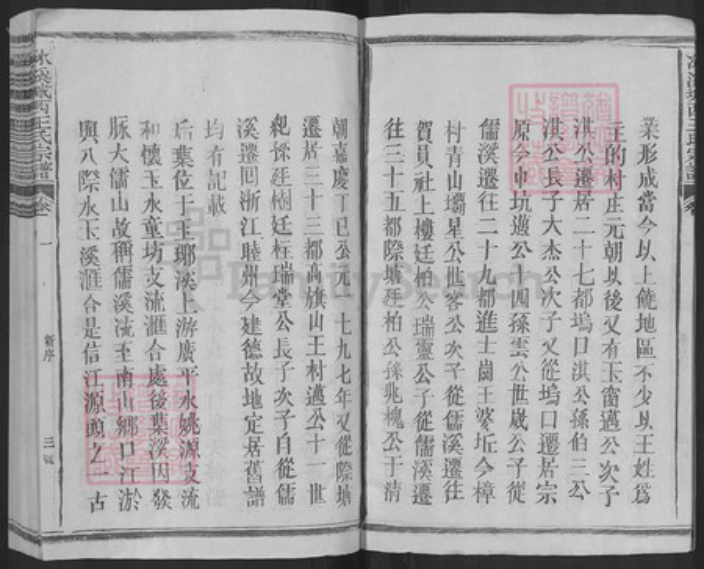 業形成當今以上饒地區不少以王姓爲
王的村庄元朝以後又有玉窗邁公次子
淇公遷居二十七都塢口淇公孫伯三公
淇公長子大杰公次子又從塢口遷居宗
原今中坑邁公十四孫雲公世歲公子從
儒溪遷往二十九都進士崗王婆坵今樟
村青山壩星公世客公次子從儒溪遷往
賀員社上樓廷柏公瑞靈公子從儒溪遷
往三十五都際塘廷柏公孫兆槐公于清
朝嘉慶丁巳公元一七九七年又從際塘
遷居三十三都髙旗山王村邁公十一世
紀孫廷樹廷枉瑞堂公長子次子自從儒
溪遷回浙江睦州今建德故地定居舊譜
均有記載
后葉位于玉瑯溪上游廣平水姚源支流
和懷玉水童坊支流滙合處後葉溪因發
脉大儒山故稱儒溪流至南山鄉口江淤
與八際水玉溪滙合是信江源頭之一古
冰溪城西王氏宗譜
卷一
新序
三
FamilySearch